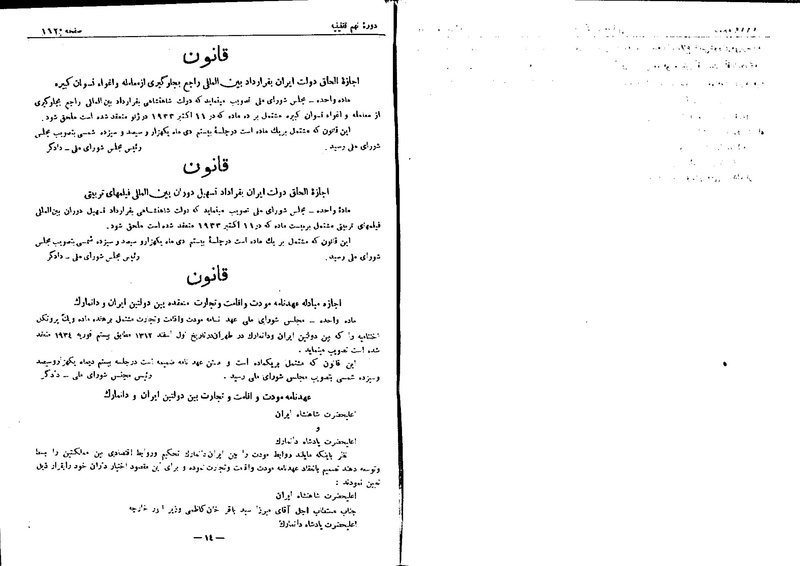 دورهٔ نهم تقنینیه
صفحه ۱۱۲۰
قانون
اجازهٔ الحاق دولت ایران بقرارداد بین‌المللی راجع بجلوگیری از معامله و اغواء نسوان کبیره
ماده واحده ـ مجلس شورای ملی تصویب مینماید که دولت شاهنشاهی بقرارداد بین‌المللی راجع بجلوگیری
از معامله و اغواء نسوان کبیره مشتمل بر ده ماده که در ۱۱ اکتبر ۱۹۳۳ در ژنو منعقد شده است ملحق شود .
این قانون که مشتمل بر یک ماده است در جلسهٔ بیستم دی ماه یکهزار و سیصد و سیزده شمسی بتصویب مجلس
شورای ملی رسید . رئیس مجلس شورای ملی ـ دادگر
قانون
اجازهٔ الحاق دولت ایران بقرارداد تسهیل دوران بین‌المللی فیلمهای تربیتی
مادهٔ واحده ـ مجلس شورای ملی تصویب مینماید که دولت شاهنشاهی بقرارداد تسهیل دوران بین‌المللی
فیلمهای تربیتی مشتمل بر بیست ماده که در ۱۱ اکتبر ۱۹۳۳ منعقد شده است ملحق شود .
این قانون که مشتمل بر یک ماده است در جلسهٔ بیستم دی ماه یکهزار و سیصد و سیزده شمسی بتصویب مجلس
شورای ملی رسید . رئیس مجلس شورای ملی ـ دادگر
قانون
اجازه مبادله عهدنامه مودت و اقامت و تجارت منعقده بین دولتین ایران و دانمارک
ماده واحده ـ مجلس شورای ملی عهد نامه مودت و اقامت و تجارت مشتمل بر هفده ماده و یک پروتکل
اختتامیه را که بین دولتین ایران و دانمارک در طهران در تاریخ اول اسفند ۱۳۱۲ مطابق بیستم فوریه ۱۹۳۴ منعقد
شده است تصویب مینماید .
این قانون که مشتمل بر یکماده است و متن عهد نامه ضمیمه است در جلسه بیستم دیماه یکهزار و سیصد
و سیزده شمسی بتصویب مجلس شورای ملی رسید . رئیس مجلس شورای ملی ـ دادگر
عهدنامه مودت و اقامت و تجارت بین دولتین ایران و دانمارک
اعلیحضرت شاهنشاه ایران
و
اعلیحضرت پادشاه دانمارک
نظر باینکه مایلند روابط مودت را بین ایران و دانمارک تحکیم و روابط اقتصادی بین مملکتین را بسط
و توسعه دهند تصمیم بانعقاد عهدنامه مودت و اقامت و تجارت نموده و برای این مقصود اختیار داران خود را بقرار ذیل
تعیین نمودند :
اعلیحضرت شاهنشاه ایران
جناب مستطاب اجل آقای میرزا سید باقر خان کاظمی وزیر امور خارجه
اعلیحضرت پادشاه دانمارک
ـ ۱۴ ـ